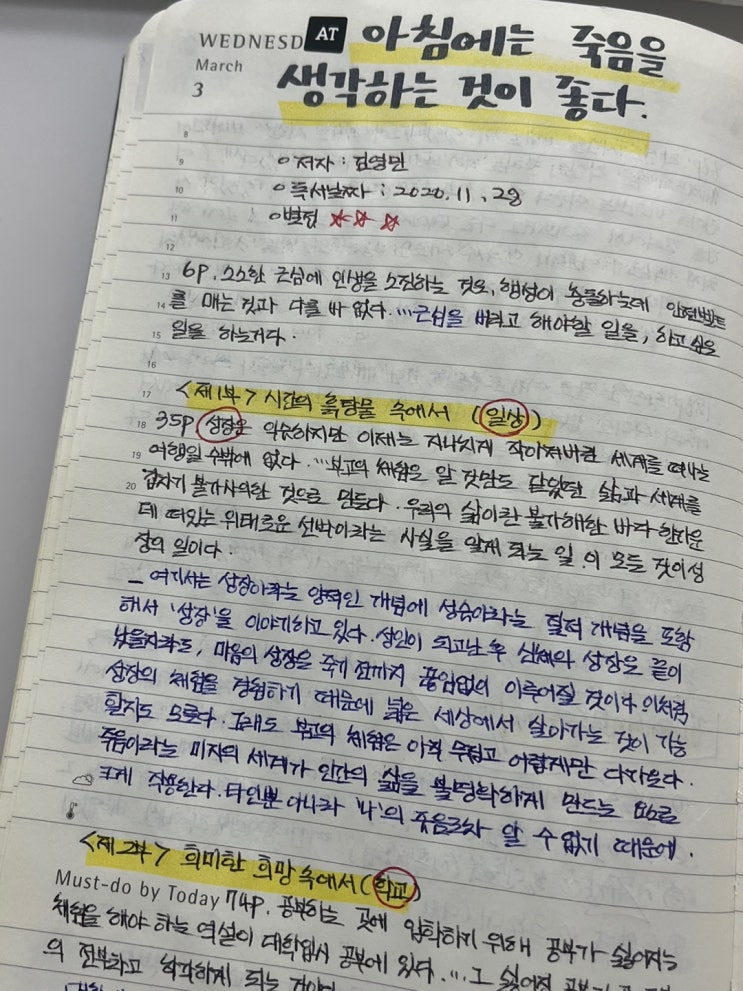 WEDNESD AT
March
3
아침에는 죽음을
생각하는 것이 좋다.
8
9 ○저자 : 김영민
10 ○독서날짜 : 2020. 11. 29
11 ○별점 ☆☆☆
12
13 6p. 소소한 근심에 인생을 소진하는 것은, 행성이 충돌하는데 안전벨트
14 를 매는 것과 다를 바 없다. …근심을 버리고 해야할 일을, 하고싶은
15 일을 하는거다.
16
17 <제1부> 시간의 흙탕물 속에서 (일상)
18 35p 성장은 익숙하지만 이제는 지나치게 작아져버린 세계를 떠나는
19 여행일 수밖에 없다. …부고의 체험은 알 것만도 같았던 삶과 세계를
20 갑자기 불가사의한 것으로 만든다. 우리의 삶이란 불가해한 바다 한가운
데 떠있는 위태로운 선박이라는 사실을 알게 되는 일. 이 모든 것이 성
장의 일이다.
- 여기서는 성장이라는 양적인 개념에 성숙이라는 질적 개념을 포함
해서 '성장'을 이야기하고 있다. 성인이 되고난 후 신체의 성장은 끝이
났을지라도, 마음의 성장은 죽기 전까지 끊임없이 이루어질 것이다. 이처럼
성장의 체험을 경험하기 때문에 넓은 세상에서 살아가는 것이 가능
할지도 모른다. 그래도 부고의 체험은 아직 무겁고 어렵게만 다가온다.
죽음이라는 미지의 세계가 인간의 삶을 불명확하게 만드는 요소로
크게 작용한다. 타인뿐 아니라 '나'의 죽음조차 알 수 없기 때문에.
<제2부> 희미한 희망 속에서 (학교)
Must-do by Today 74p. 공부하는 곳에 입학하기 위해 공부가 싫어지는
체험을 해야 하는 역설이 대학입시 공부에 있다. …그 싫어진
의 전부라고 착각하게 되는